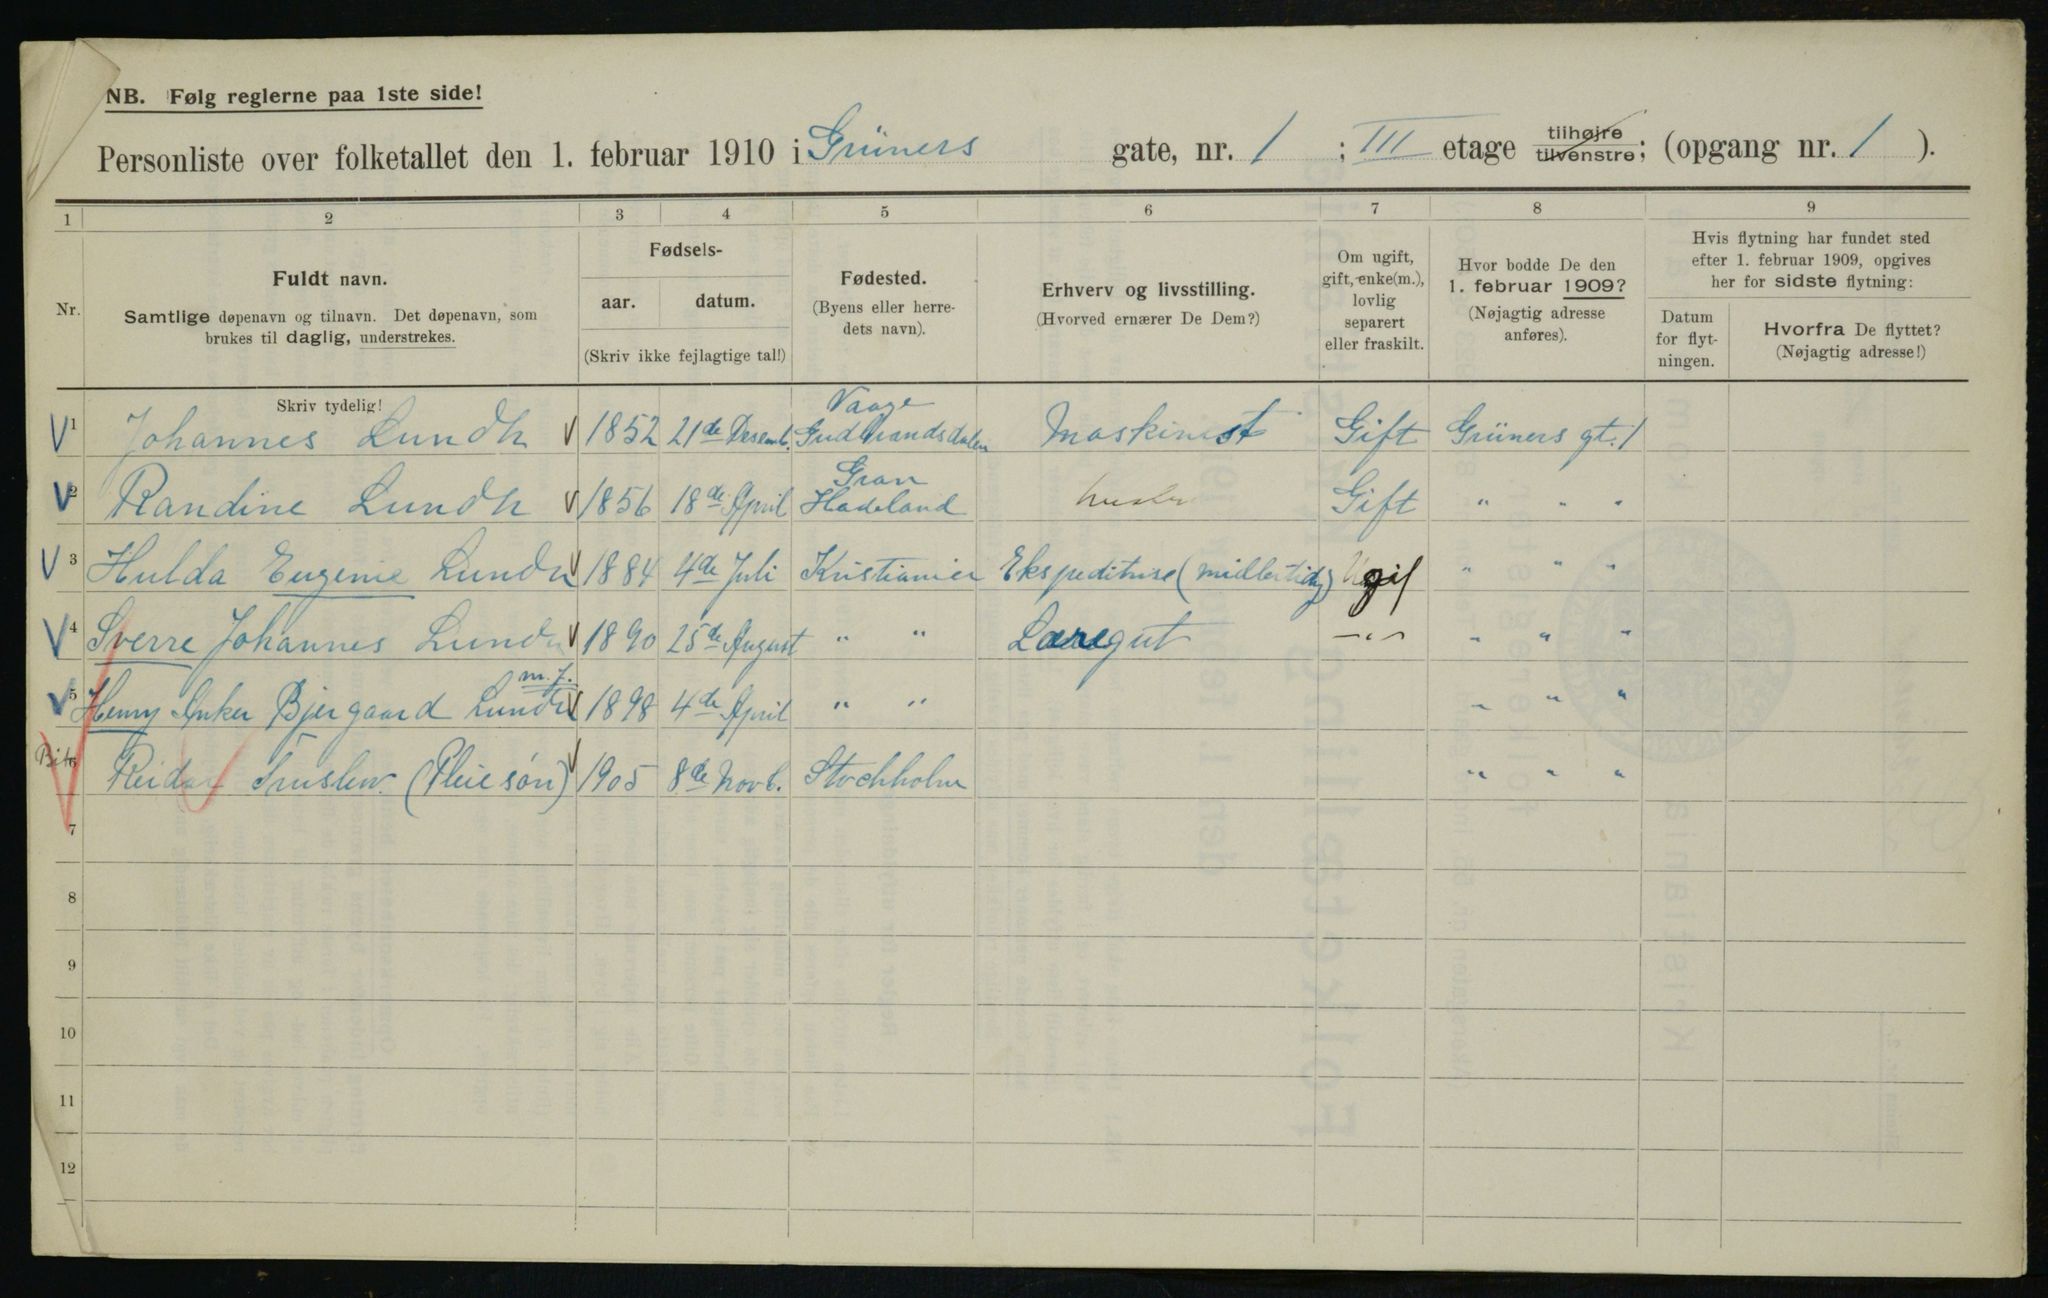 NB. Følg reglerne paa 1ste side!
Personliste over folketallet den 1. februar 1910 i Grüners gate, nr. 1 ; III etage tilhøjre tilvenstre; (opgang nr. 1 ).
1 2 3 4 5 6 7 8 9
Nr.
Fuldt navn.
Samtlige døpenavn og tilnavn. Det døpenavn, som
brukes til daglig, understrekes.
Skriv tydelig!
Fødsels-
aar. datum.
(Skriv ikke fejlagtige tal!)
Fødested.
(Byens eller herre-
dets navn).
Erhverv og livsstilling.
(Hvorved ernærer De Dem?)
Om ugift,
gift, enke(m.),
lovlig
separert
eller fraskilt.
Hvor bodde De den
1. februar 1909?
(Nøjagtig adresse
anføres).
Hvis flytning har fundet sted
efter 1. februar 1909, opgives
her for sidste flytning:
Datum
for flyt-
ningen.
Hvorfra De flyttet?
(Nøjagtig adresse!)
Vaage
V 1 Johannes Lundh V 1852 21de Desemb. Gudbrandsdalen Maskinist Gift Grüners gt. 1
Gran
V 2 Randine Lundh V 1856 18de April Hadeland Gift " " "
V 3 Hulda Eugenie Lundh V 1884 4de Juli Kristiania Ekspeditrise (midlertidig) Ugif " " "
V 4 Sverre Johannes Lundh V 1890 25de August " " Læregut -"- " " "
m.f.
V 5 Henry Anker Bjergaard Lundh V 1898 4de April " " " " "
6 Reidar (Pleiesøn) V 1905 8de Novb. Stockholm " " "
7
8
9
10
11
12